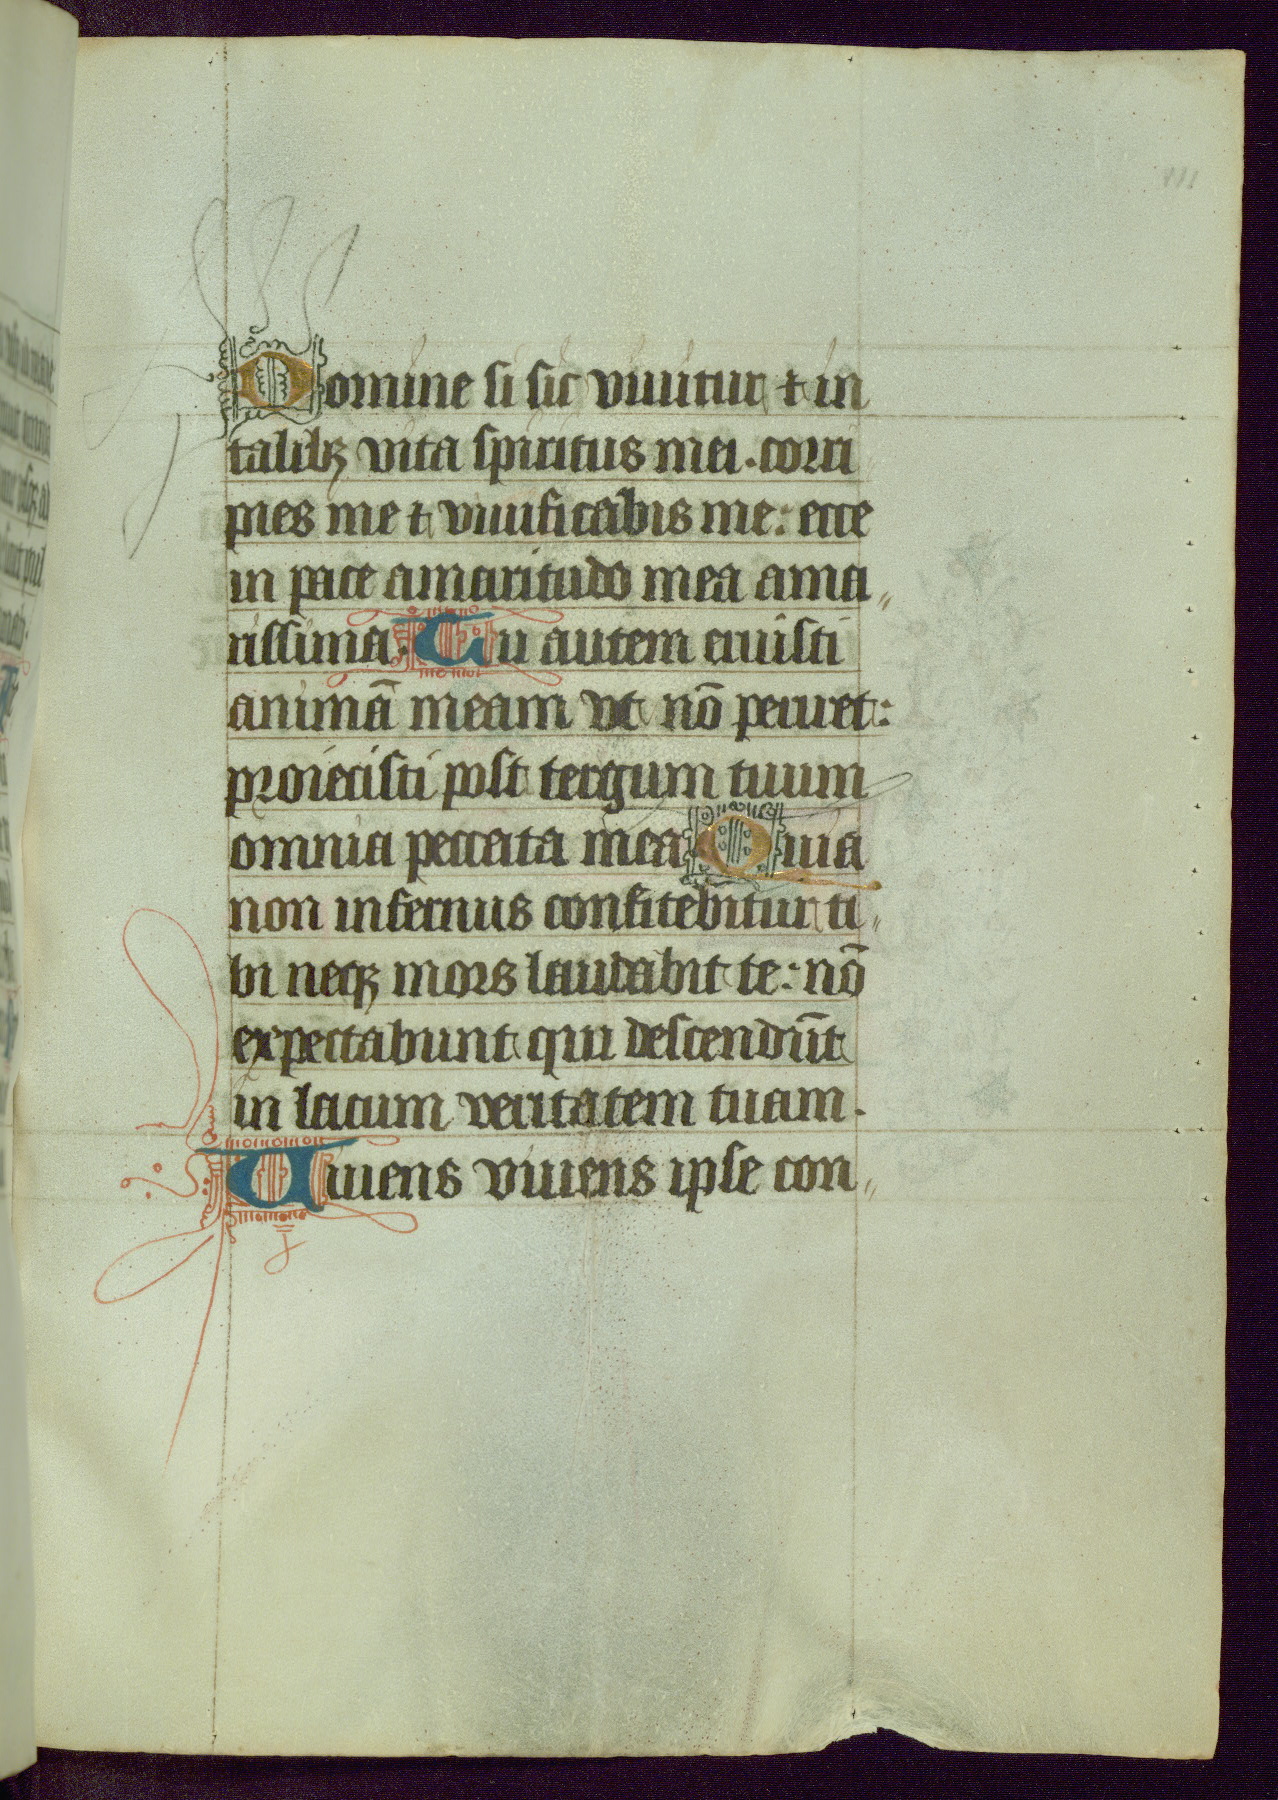 Domine si sic viuitur et in
talibꝫ vita spiritus mei. corri
pies me et viuificabis me: ecce
in pace amaritudo mea ama
rissima. Tu autem eruisti
animā meam vt nō periret:
proiecisti post tergum tuum
omnia peccata mea Quia
non infernus confitebitur ti
bi neqꝫ mors laudabit te: nō
expectabunt qui descendūt
in lacum veritatem tuam.
Viuens viuens ipse con